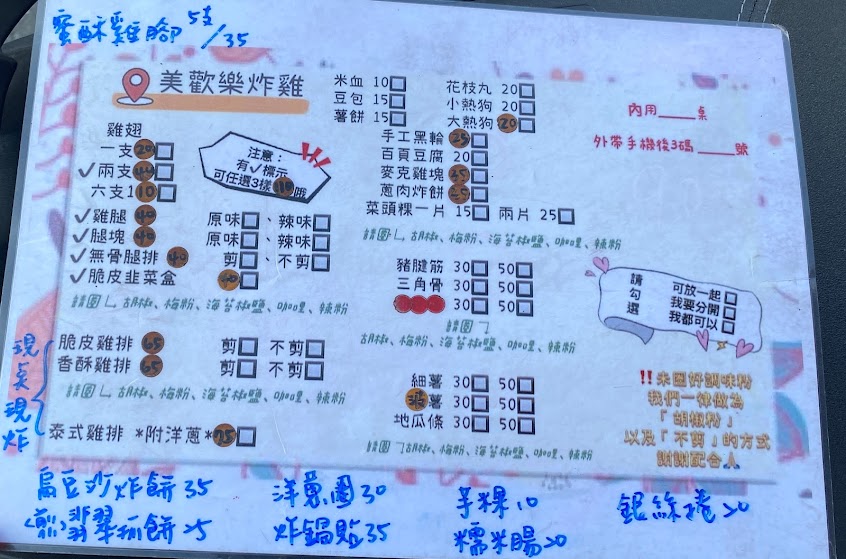 蜜酥雞腳 5支/35
美歡樂炸雞
雞翅
一支 20
✓兩支
六支 110
✓雞腿 40 原味、辣味
✓腿塊 40 原味、辣味
✓無骨腿排 40 剪、不剪
✓脆皮韭菜盒 40
請圈 胡椒、梅粉、海苔椒鹽、咖哩、辣粉
注意：
有✓標示
可任選3樣110哦
現點現炸
脆皮雞排 65 剪 不剪
香酥雞排 65 剪 不剪
請圈 胡椒、梅粉、海苔椒鹽、咖哩、辣粉
泰式雞排 *附洋蔥* 75
米血 10
豆包 15
薯餅 15
花枝丸 20
小熱狗 20
大熱狗 20
手工黑輪 25
百頁豆腐 20
麥克雞塊 35
蔥肉炸餅
菜頭粿一片 15 兩片 25
請圈 胡椒、梅粉、海苔椒鹽、咖哩、辣粉
豬腱筋 30 50
三角骨 30 50
30 50
請圈
胡椒、梅粉、海苔椒鹽、咖哩、辣粉
細薯 30 50
薯 30 50
地瓜條 30 50
請圈 胡椒、梅粉、海苔椒鹽、咖哩、辣粉
內用____桌
外帶手機後3碼____號
請勾選
可放一起
我要分開
我都可以
!!未圈好調味粉
我們一律做為
「胡椒粉」
以及「不剪」的方式
謝謝配合
扁豆沙炸餅 35
(煎)翡翠抓餅 25
洋蔥圈 30
炸鍋貼 35
芋粿 10
糯米腸 20
銀絲捲 20